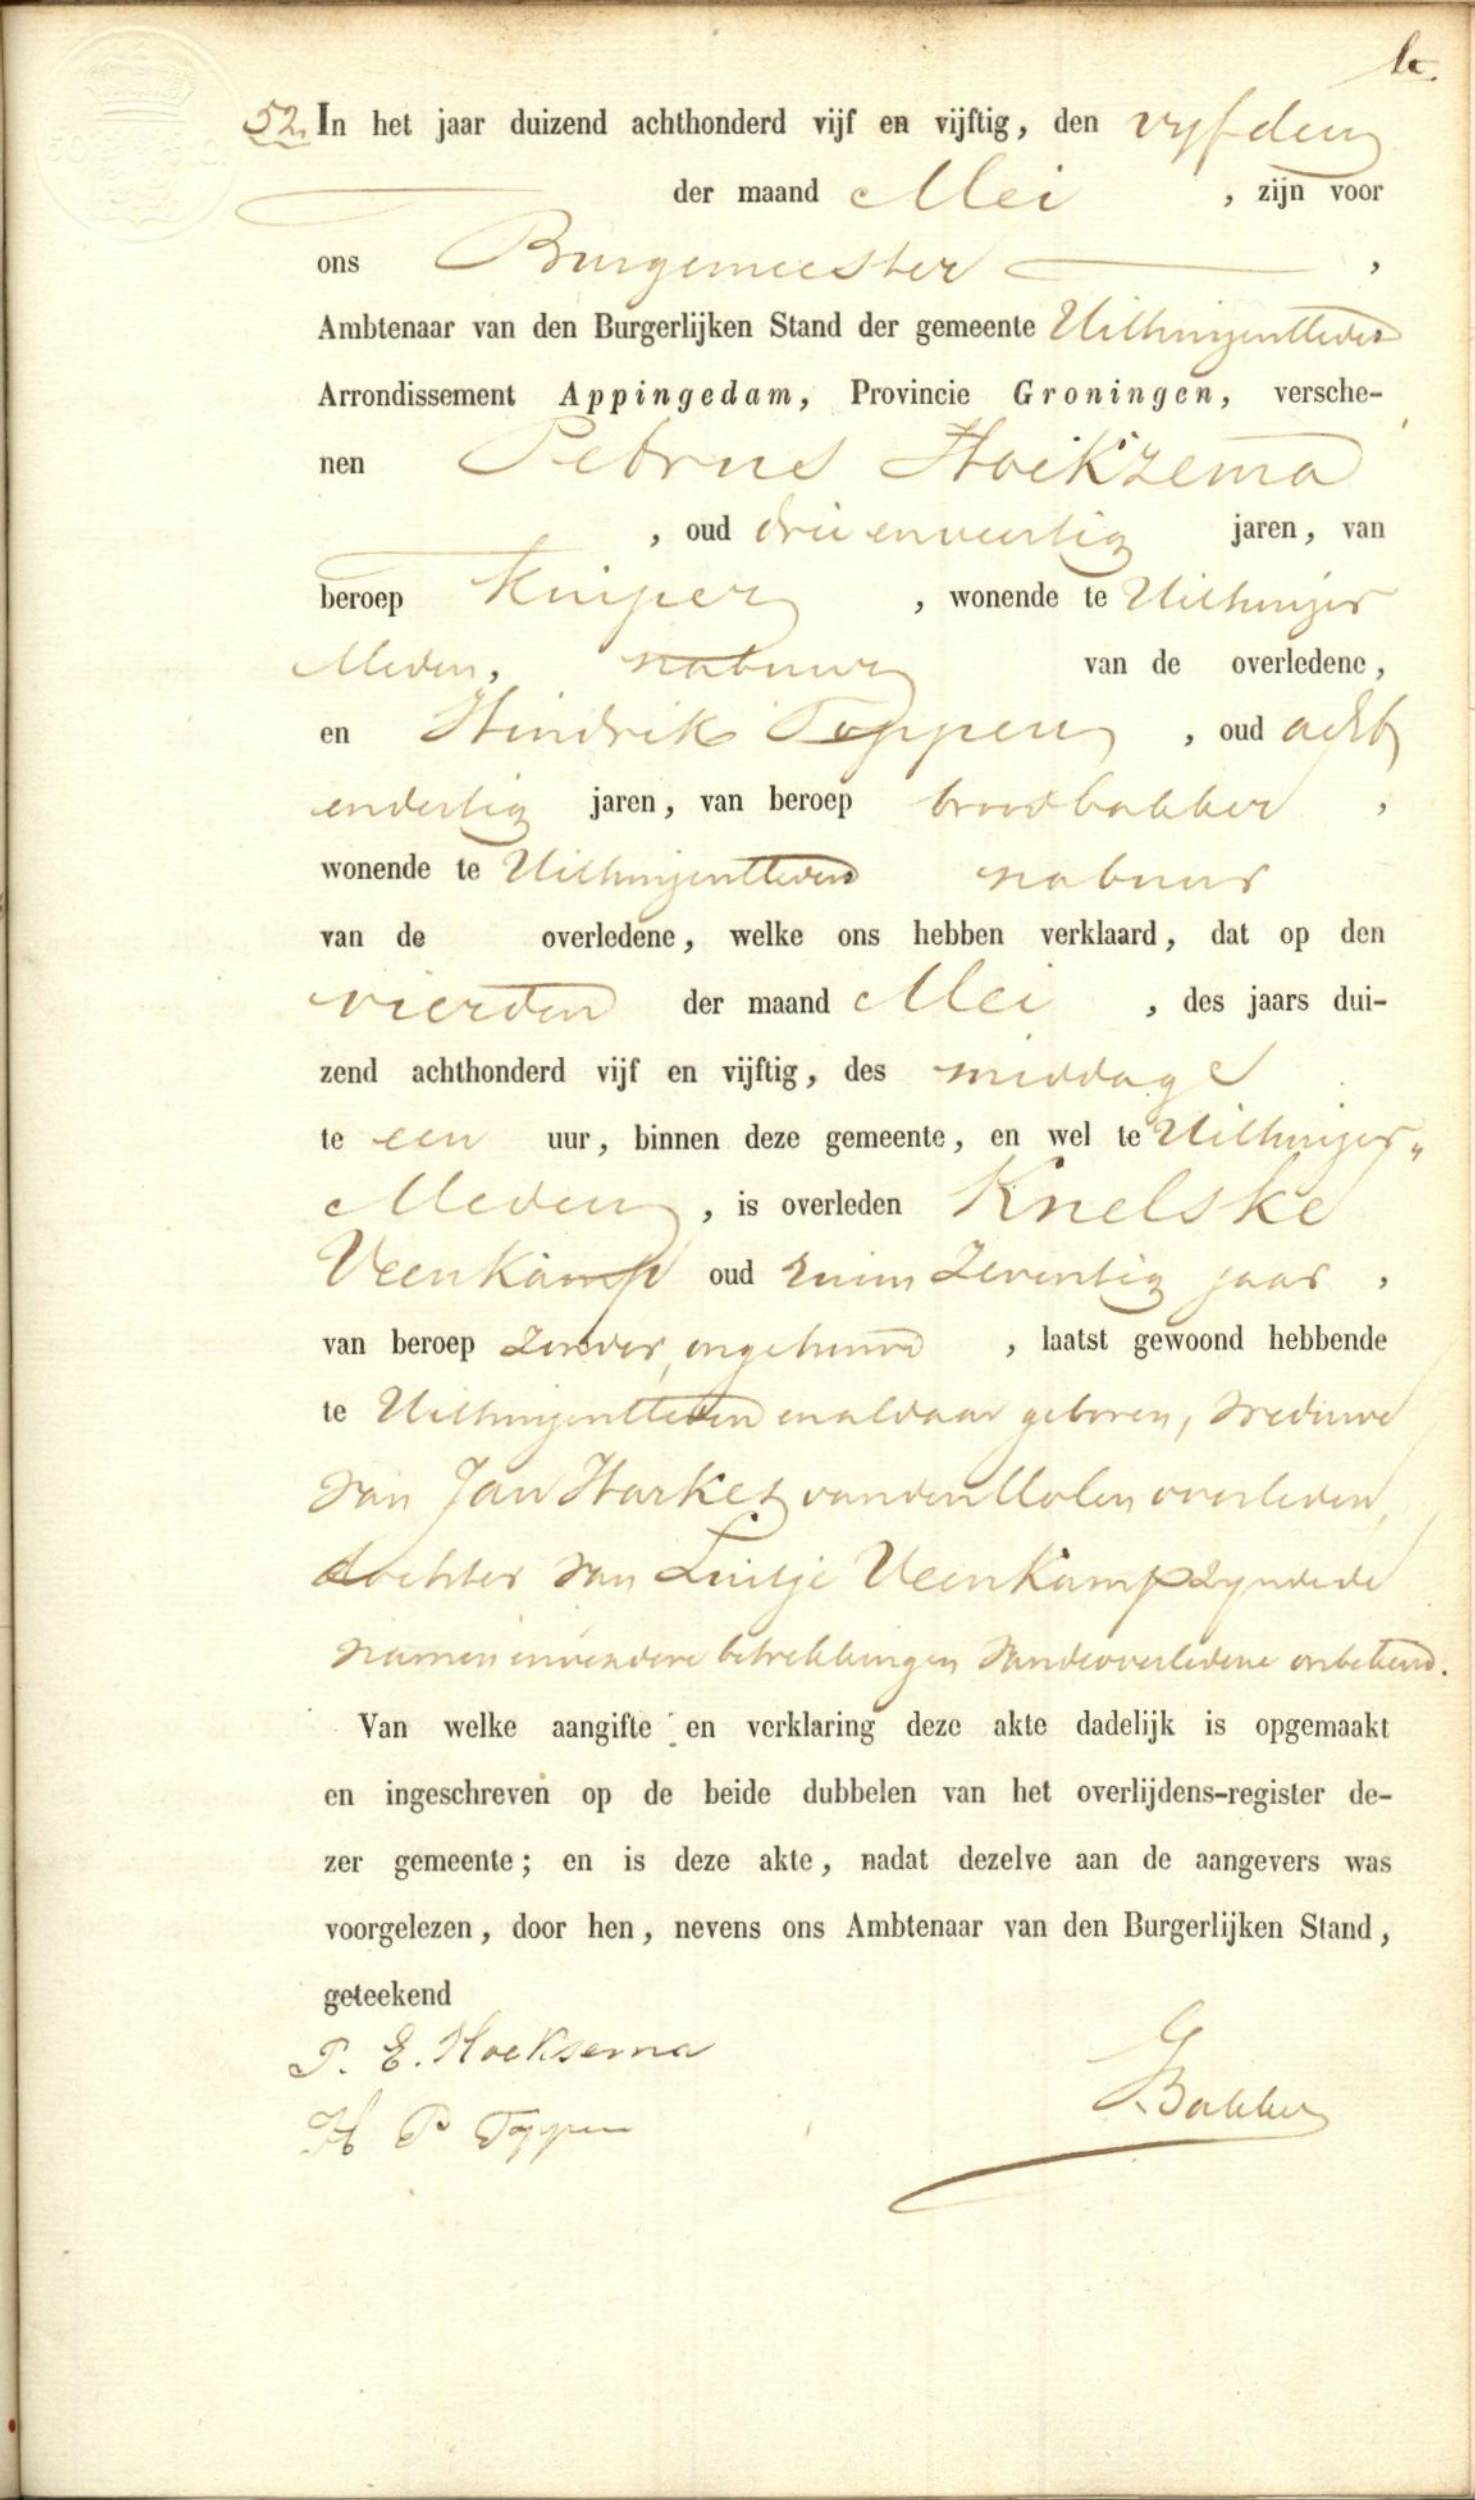 52. In het jaar duizend achthonderd vijf en vijftig, den vyfden
der maand Mei , zijn voor
ons Burgemeester ,
Ambtenaar van den Burgerlijken Stand der gemeente Uithuizermeeden
Arrondissement Appingedam, Provincie Groningen, versche-
nen Petrus Hoekzema
, oud drieenveertig jaren, van
beroep Kuiper , wonende te Uithuizer
Meden, nabuur van de overledene,
en Hindrik Toppen , oud acht
endertig jaren, van beroep broodbakker ,
wonende te nabuur
van de overledene, welke ons hebben verklaard, dat op den
vierden der maand Mei , des jaars dui-
zend achthonderd vijf en vijftig, des middags
te een uur, binnen deze gemeente, en wel te Uithuizer„
Meden , is overleden Knelske
Veenkamp oud ruim Zeventig jaar ,
van beroep zonder , laatst gewoond hebbende
te en aldaar geboren, weduwe
van Jan Harkes van der Molen overleden,
dochter van Luitje Veenkamp zynde de
namen en verdere betrekkingen van de overledene onbekend.
Van welke aangifte en verklaring deze akte dadelijk is opgemaakt
en ingeschreven op de beide dubbelen van het overlijdens-register de-
zer gemeente; en is deze akte, nadat dezelve aan de aangevers was
voorgelezen, door hen, nevens ons Ambtenaar van den Burgerlijken Stand,
geteekend
P. E. Hoeksema
G Bakker
H P Toppen